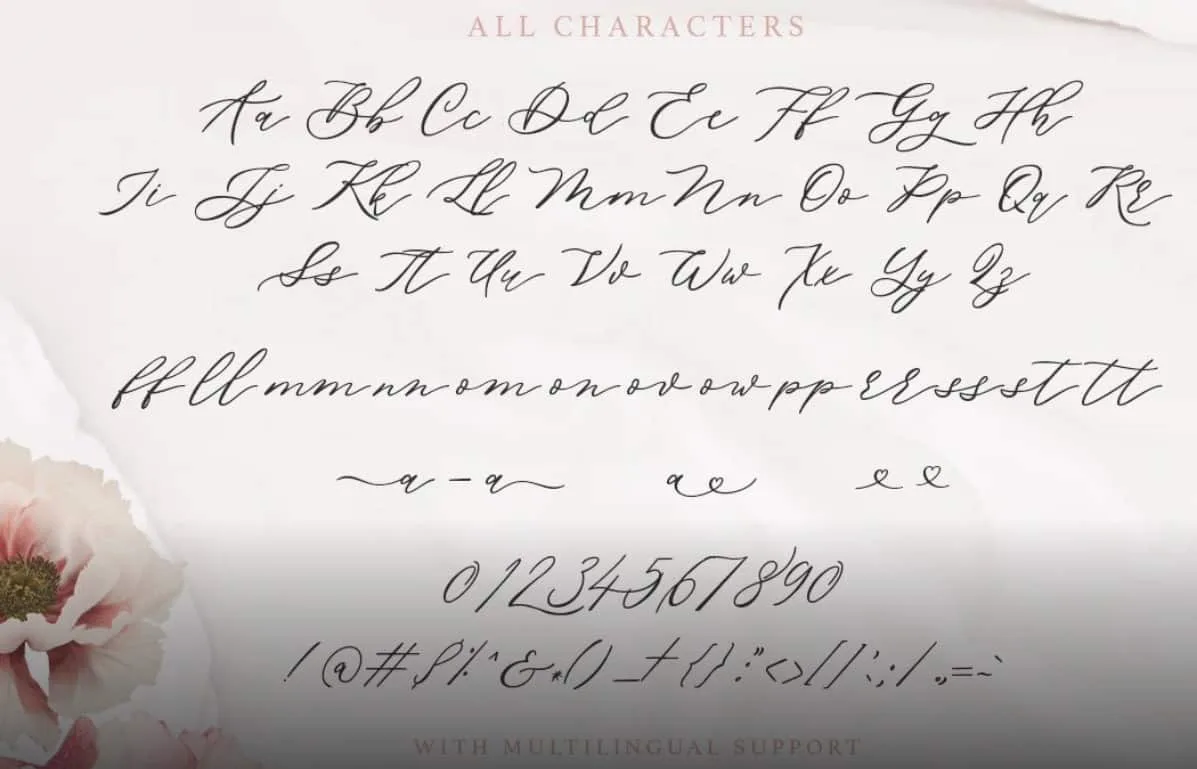 ALL CHARACTERS
Aa Bb Cc Dd Ee Ff Gg Hh
Ii Jj Kk Ll Mm Nn Oo Pp Qq Rr
Ss Tt Uu Vv Ww Xx Yy Zz
ff ll mm nn om on ov ow pp rr ss st tt
a – a ae e e
0 1 2 3 4 5 6 7 8 9 0
! @ # $ % ^ & * ( ) _ + { } : " < > [ ] ' ; : / . , = ~ `
WITH MULTILINGUAL SUPPORT